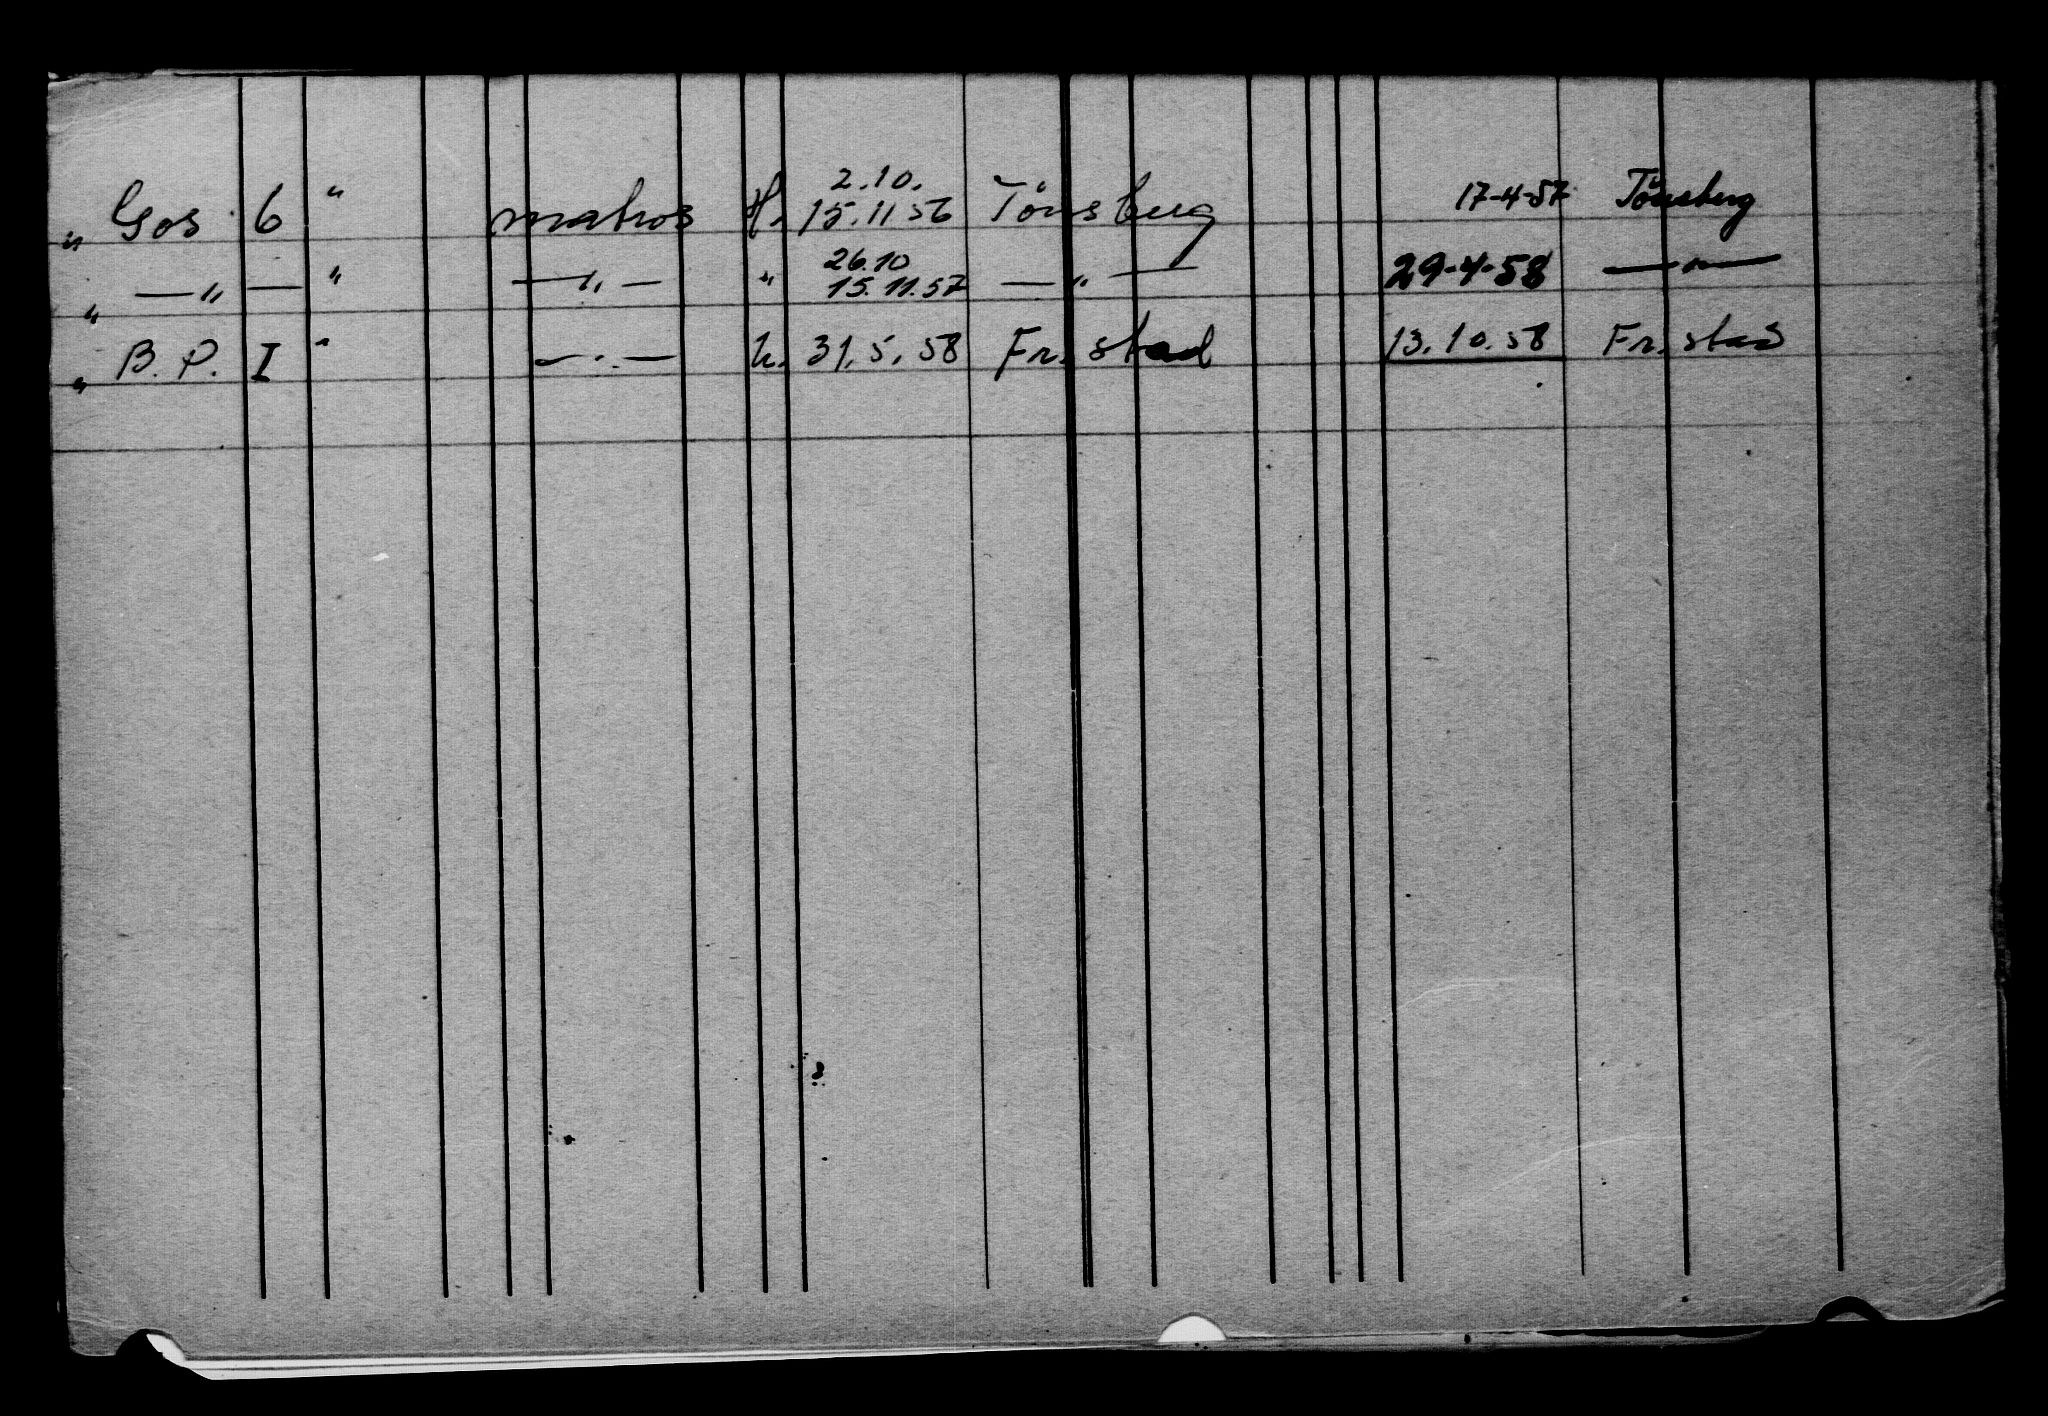 2.10.
" Gos 6 " matros H. 15.11 56 Tönsberg 17-4-57 Tönsberg
26.10
" —"— " —"— " 15.11.57 —"— 29-4-58 —"—
" B. P. I " —"— h. 31.5.58 Fr.stad 13.10.58 Fr.stad